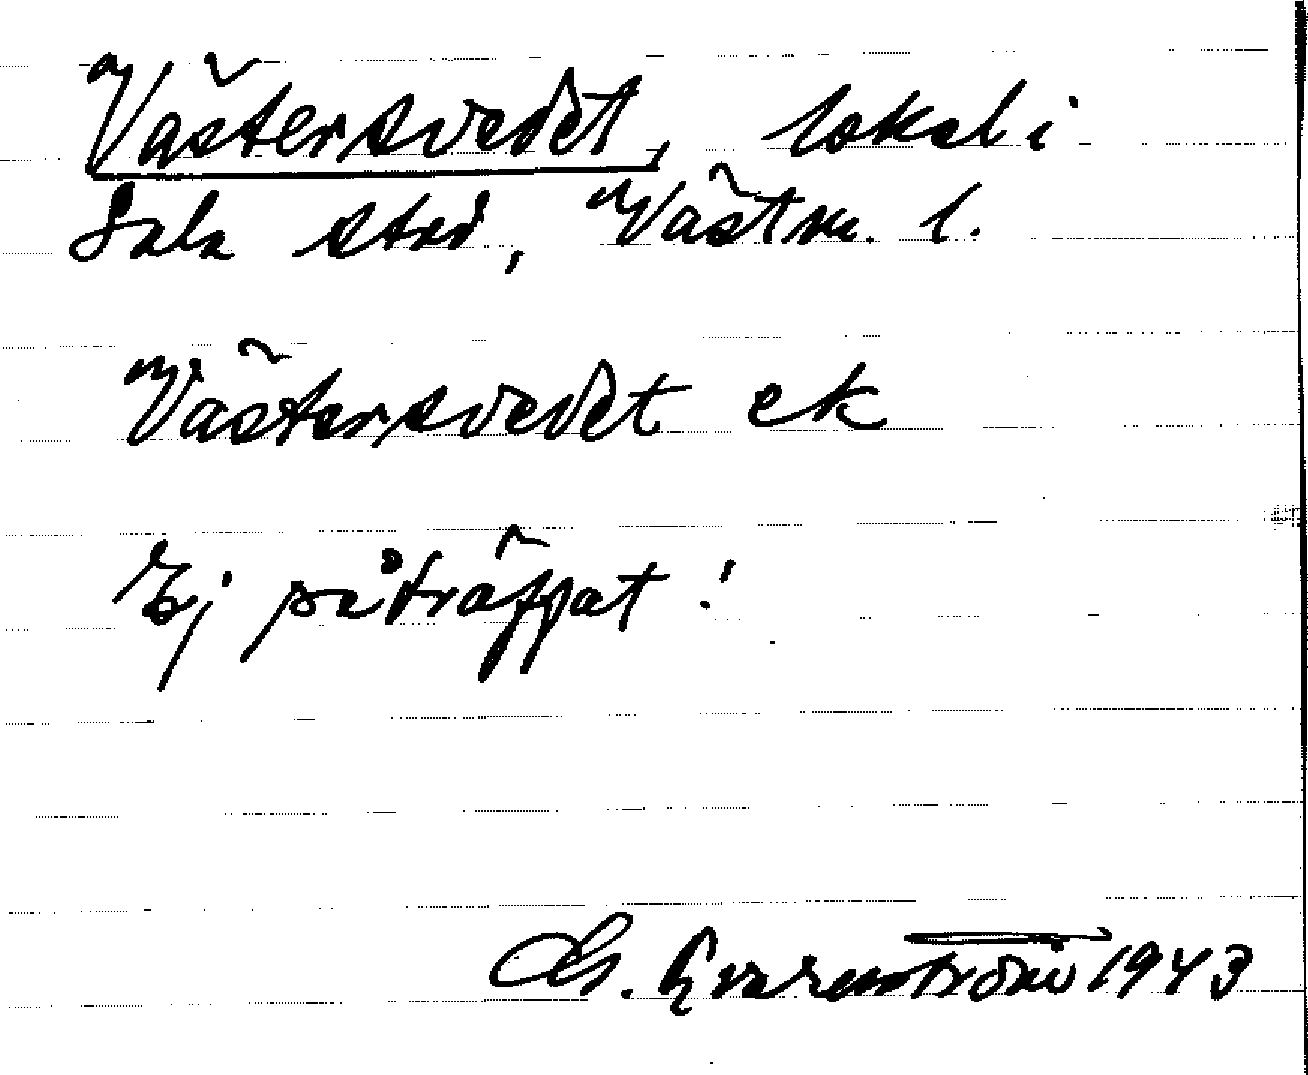 Västersvedet, lokal i
Sala stad, Västm. l.
Västersvedet ek
Ej påträffat!
G. Qvarnström 1943